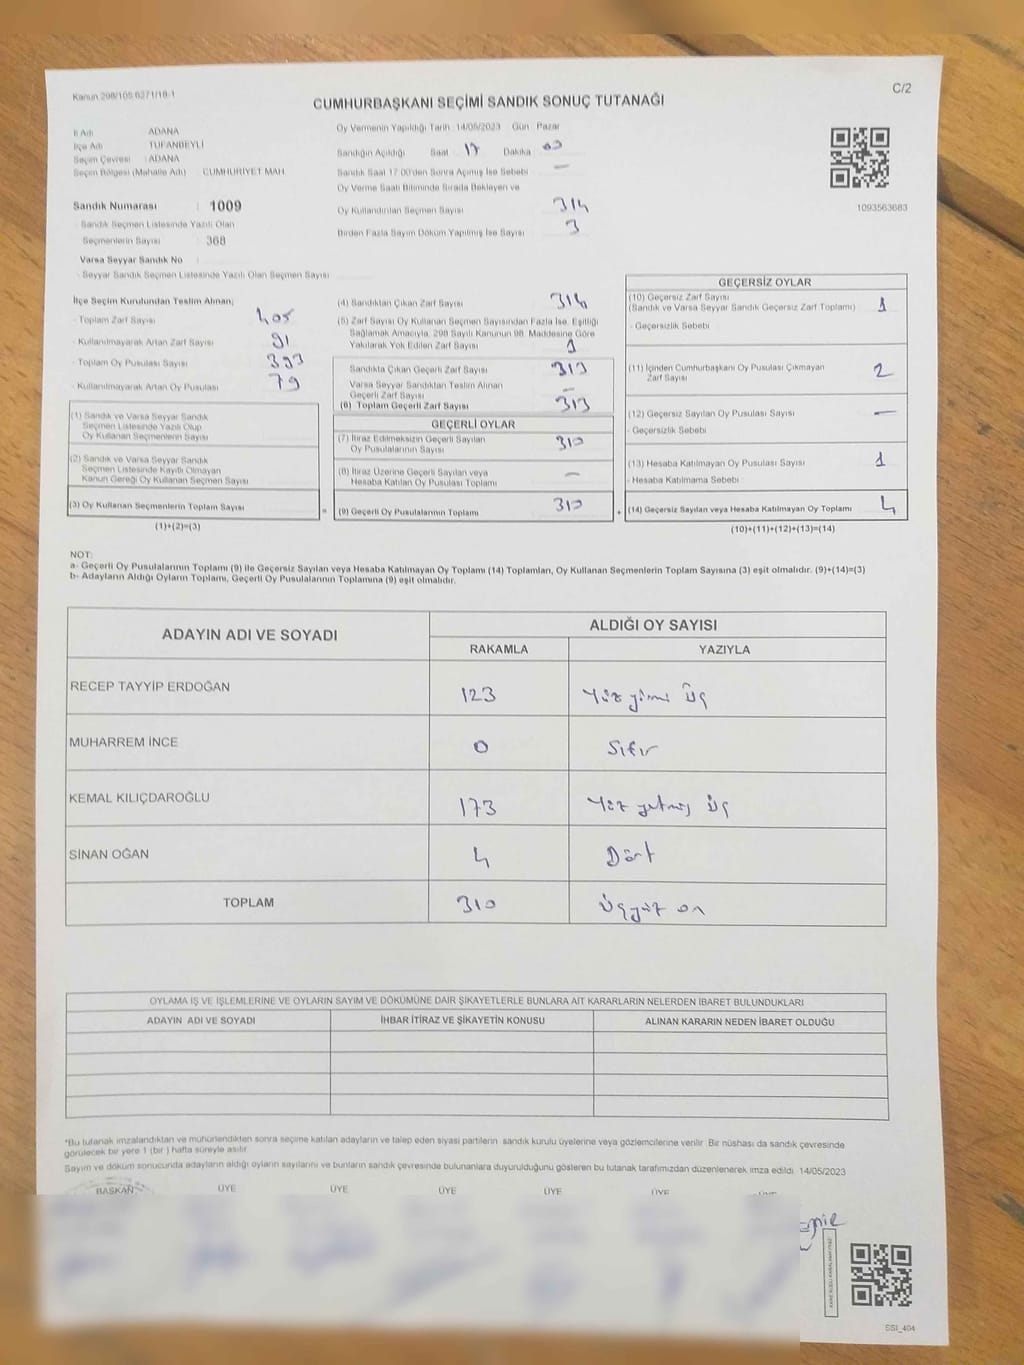 Kanun 298/105 6271/18-1
C/2
CUMHURBAŞKANI SEÇİMİ SANDIK SONUÇ TUTANAĞI
İl Adı ADANA
İlçe Adı TUFANBEYLİ
Seçim Çevresi : ADANA
Seçim Bölgesi (Mahalle Adı) CUMHURİYET MAH
Sandık Numarası : 1009
- Sandık Seçmen Listesinde Yazılı Olan
Seçmenlerin Sayısı : 368
Varsa Seyyar Sandık No :
- Seyyar Sandık Seçmen Listesinde Yazılı Olan Seçmen Sayısı
Oy Vermenin Yapıldığı Tarih 14/05/2023 Gün Pazar
Sandığın Açıldığı Saat 17 Dakika 03
Sandık Saat 17:00'den Sonra Açımış İse Sebebi —
Oy Verme Saati Bitiminde Sırada Bekleyen ve
Oy Kullandırılan Seçmen Sayısı 314
Birden Fazla Sayım Döküm Yapılmış İse Sayısı 3
1093563683
İlçe Seçim Kurulundan Teslim Alınan;
- Toplam Zarf Sayısı 405
- Kullanılmayarak Artan Zarf Sayısı 91
- Toplam Oy Pusulası Sayısı 393
- Kullanılmayarak Artan Oy Pusulası 79
(1) Sandık ve Varsa Seyyar Sandık
Seçmen Listesinde Yazılı Olup
Oy Kullanan Seçmenlerin Sayısı
(2) Sandık ve Varsa Seyyar Sandık
Seçmen Listesinde Kayıtlı Olmayan
Kanun Gereği Oy Kullanan Seçmen Sayısı
(3) Oy Kullanan Seçmenlerin Toplam Sayısı =
(1)+(2)=(3)
(4) Sandıktan Çıkan Zarf Sayısı 314
(5) Zarf Sayısı Oy Kullanan Seçmen Sayısından Fazla İse, Eşitliği
Sağlamak Amacıyla, 298 Sayılı Kanunun 98. Maddesine Göre
Yakılarak Yok Edilen Zarf Sayısı 1
Sandıkta Çıkan Geçerli Zarf Sayısı 313
Varsa Seyyar Sandıktan Teslim Alınan
Geçerli Zarf Sayısı —
(6) Toplam Geçerli Zarf Sayısı 313
GEÇERLİ OYLAR
(7) İtiraz Edilmeksizin Geçerli Sayılan
Oy Pusulalarının Sayısı 310
(8) İtiraz Üzerine Geçerli Sayılan veya
Hesaba Katılan Oy Pusulası Toplamı —
(9) Geçerli Oy Pusulalarının Toplamı 310 +
GEÇERSİZ OYLAR
(10) Geçersiz Zarf Sayısı
(Sandık ve Varsa Seyyar Sandık Geçersiz Zarf Toplamı) 1
- Geçersizlik Sebebi
(11) İçinden Cumhurbaşkanı Oy Pusulası Çıkmayan
Zarf Sayısı 2
(12) Geçersiz Sayılan Oy Pusulası Sayısı —
- Geçersizlik Sebebi
(13) Hesaba Katılmayan Oy Pusulası Sayısı 1
- Hesaba Katılmama Sebebi
(14) Geçersiz Sayılan veya Hesaba Katılmayan Oy Toplamı 4
(10)+(11)+(12)+(13)=(14)
NOT:
a- Geçerli Oy Pusulalarının Toplamı (9) ile Geçersiz Sayılan veya Hesaba Katılmayan Oy Toplamı (14) Toplamları, Oy Kullanan Seçmenlerin Toplam Sayısına (3) eşit olmalıdır. (9)+(14)=(3)
b- Adayların Aldığı Oyların Toplamı, Geçerli Oy Pusulalarının Toplamına (9) eşit olmalıdır.
ADAYIN ADI VE SOYADI ALDIĞI OY SAYISI
RAKAMLA YAZIYLA
RECEP TAYYİP ERDOĞAN 123 Yüz yirmi üç
MUHARREM İNCE 0 Sıfır
KEMAL KILIÇDAROĞLU 173 Yüz yetmiş üç
SİNAN OĞAN 4 Dört
TOPLAM 310 Üçyüz on
OYLAMA İŞ VE İŞLEMLERİNE VE OYLARIN SAYIM VE DÖKÜMÜNE DAİR ŞİKAYETLERLE BUNLARA AİT KARARLARIN NELERDEN İBARET BULUNDUKLARI
ADAYIN ADI VE SOYADI İHBAR İTİRAZ VE ŞİKAYETİN KONUSU ALINAN KARARIN NEDEN İBARET OLDUĞU
*Bu tutanak imzalandıktan ve mühürlendikten sonra seçime katılan adayların ve talep eden siyasi partilerin sandık kurulu üyelerine veya gözlemcilerine verilir. Bir nüshası da sandık çevresinde
görülecek bir yere 1 (bir) hafta süreyle asılır.
Sayım ve döküm sonucunda adayların aldığı oyların sayılarını ve bunların sandık çevresinde bulunanlara duyurulduğunu gösteren bu tutanak tarafımızdan düzenlenerek imza edildi. 14/05/2023
BAŞKAN ÜYE ÜYE ÜYE ÜYE ÜYE ÜYE
SSI_404